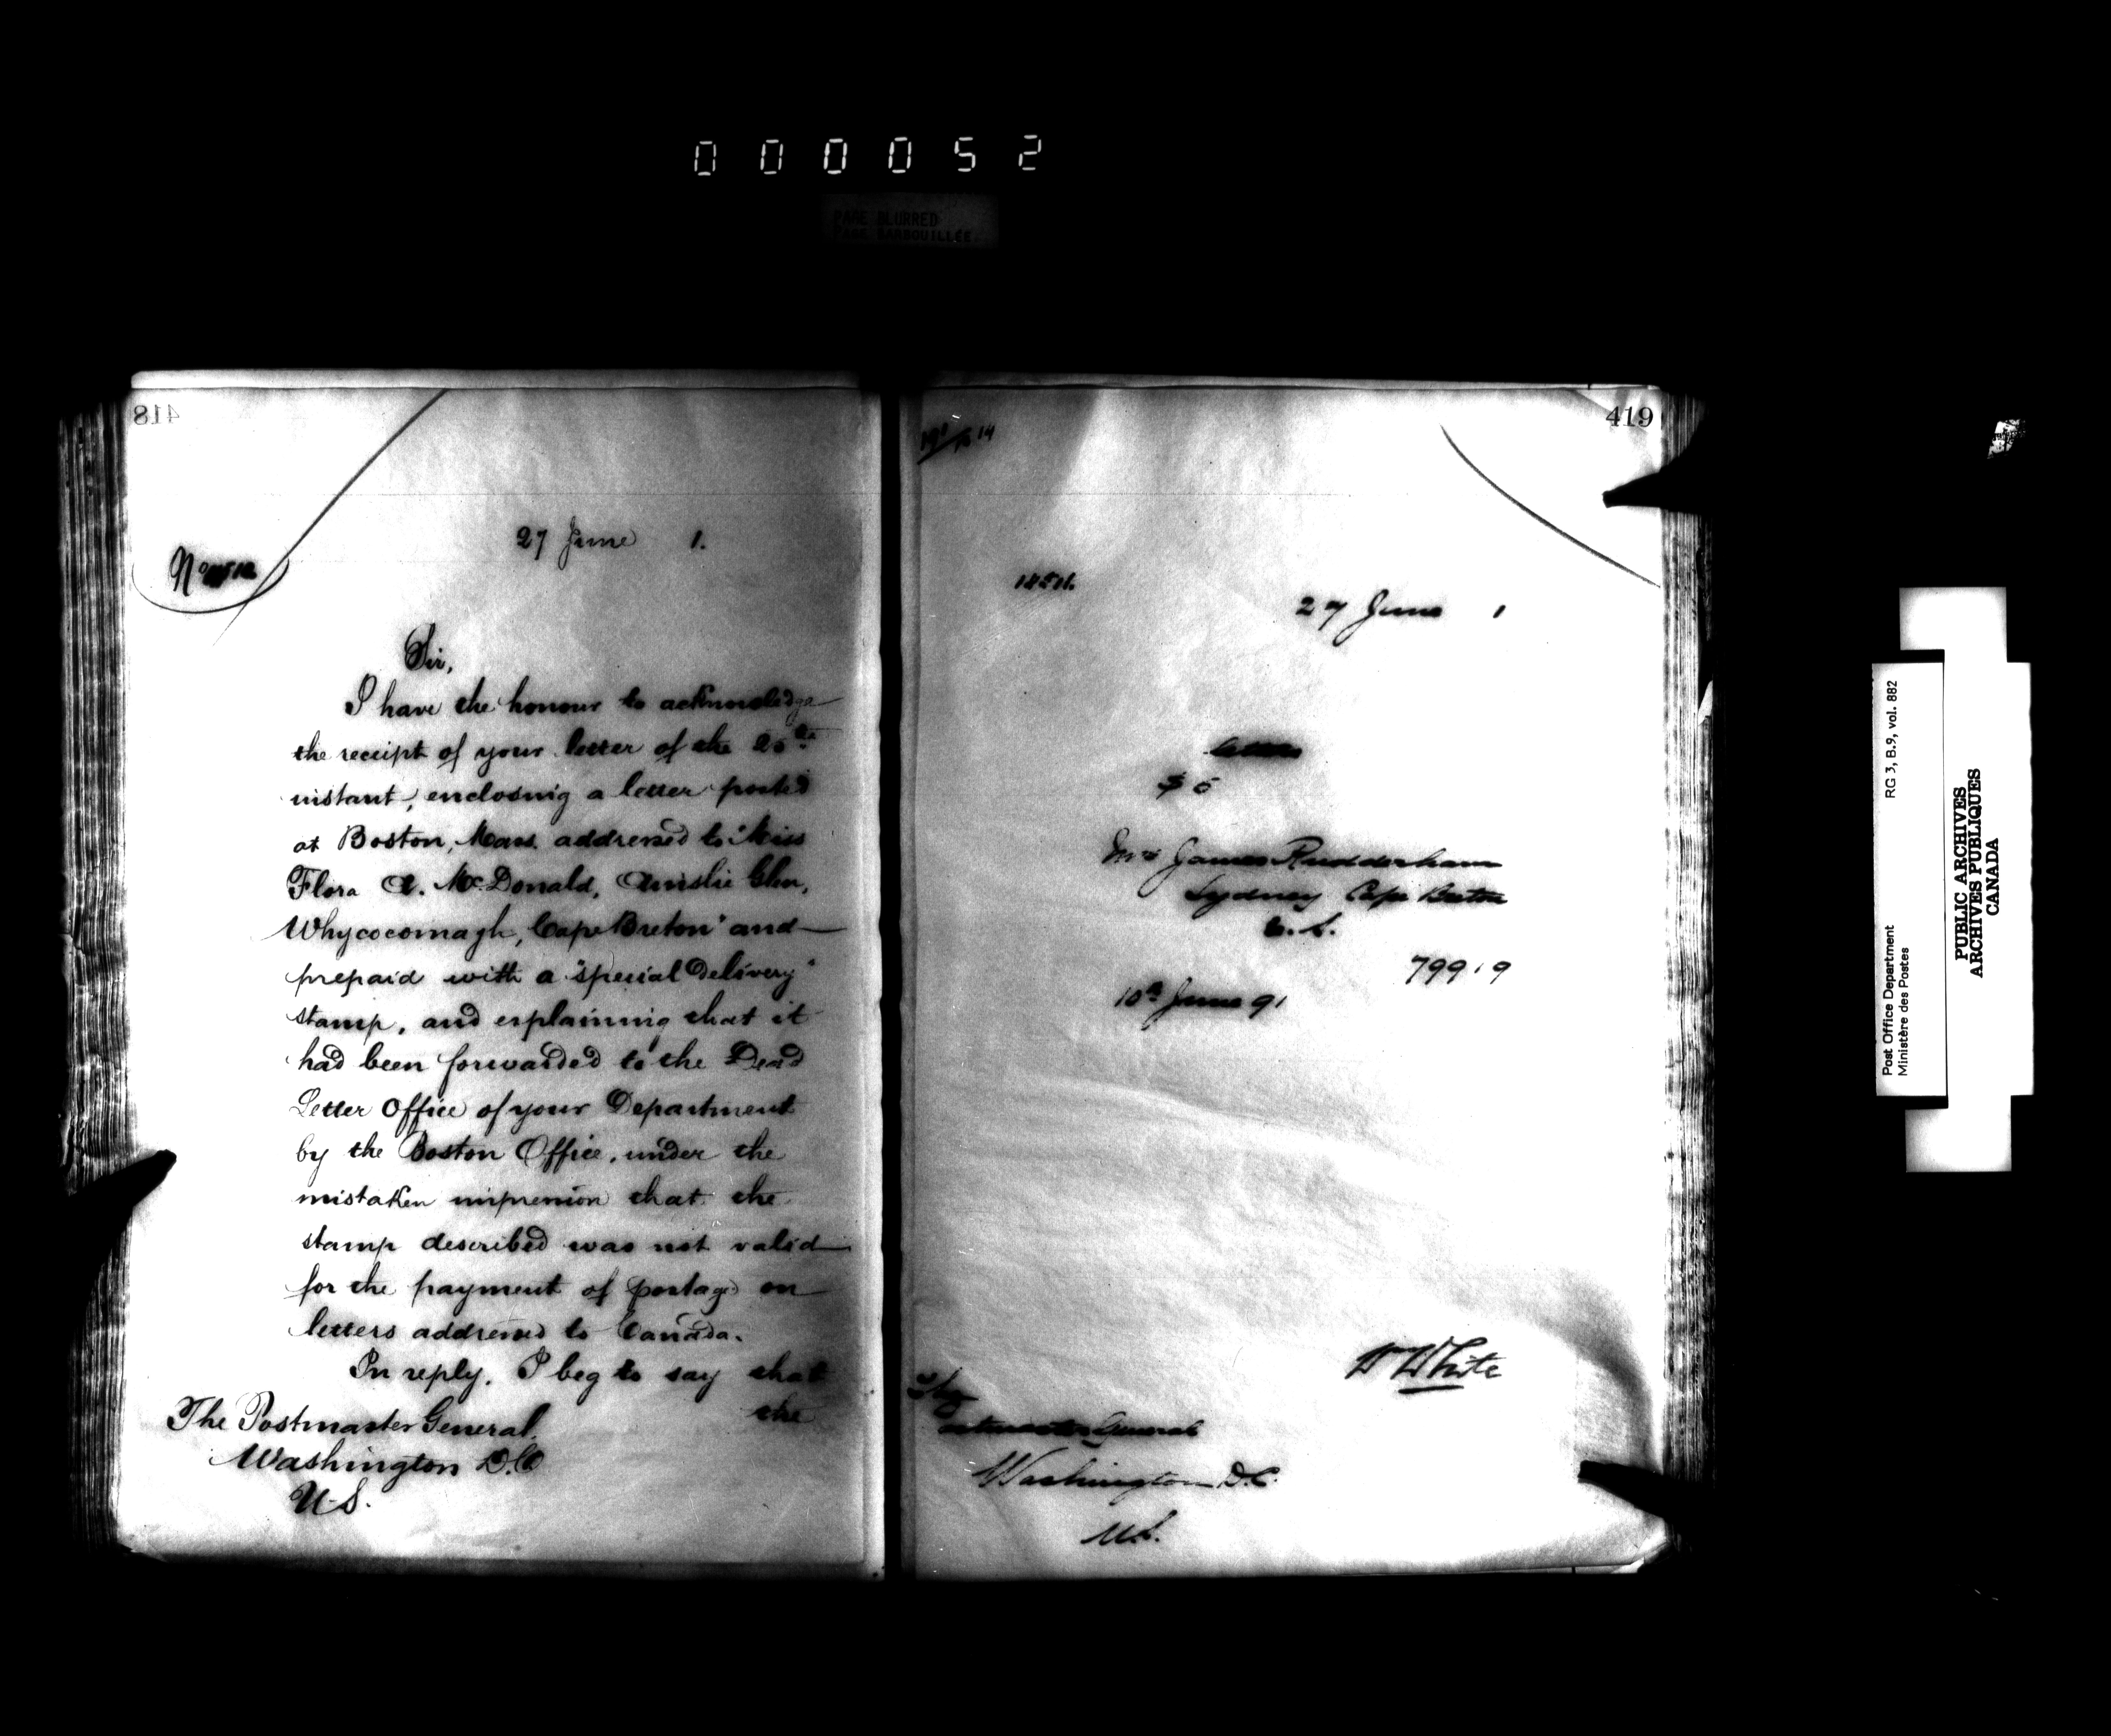 000052
PAGE BLURRED
PAGE BARBOUILLÉE
418
27 June 1.
No
Sir,
I have the honour to acknowledge
the receipt of your letter of the 25th
instant, enclosing a letter posted
at Boston, Mass. addressed to "Miss
Flora A. McDonald, Ainslie Glen,
Whycocomagh, Cape Breton" and
prepaid with a "special delivery"
stamp, and explaining that it
had been forwarded to the Dead
Letter Office of your Department
by the Boston Office, under the
mistaken impression that the
stamp described was not valid
for the payment of postage on
letters addressed to Canada.
In reply, I beg to say that
the
The Postmaster General.
Washington D.C
U.S.
419
14
27 June 1
letter
$5
Mrs James Rudderham
Sydney Cape Breton
79919
10th June 91
W White
The
Postmaster General
Washington D.C.
U.S.
Post Office Department
Ministère des Postes
RG 3, B.9, vol. 882
PUBLIC ARCHIVES
ARCHIVES PUBLIQUES
CANADA